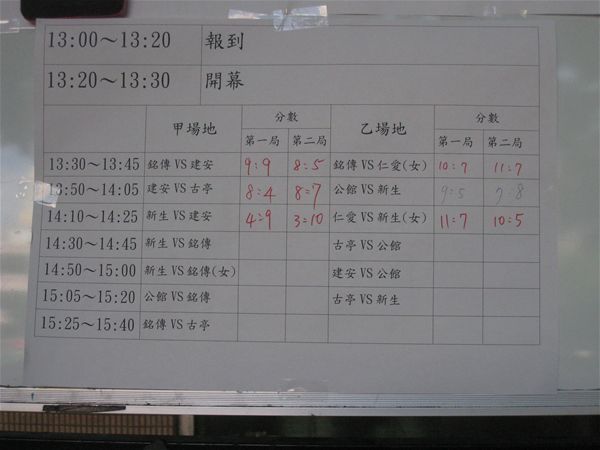 13:00～13:20 報到
13:20～13:30 開幕
甲場地 分數 乙場地 分數
第一局 第二局 第一局 第二局
13:30～13:45 銘傳 VS 建安 9:9 8:5 銘傳 VS 仁愛(女) 10:7 11:7
13:50～14:05 建安 VS 古亭 8:4 8:7 公館 VS 新生 9:5 7:8
14:10～14:25 新生 VS 建安 4:9 3:10 仁愛 VS 新生(女) 11:7 10:5
14:30～14:45 新生 VS 銘傳 古亭 VS 公館
14:50～15:00 新生 VS 銘傳(女) 建安 VS 公館
15:05～15:20 公館 VS 銘傳 古亭 VS 新生
15:25～15:40 銘傳 VS 古亭